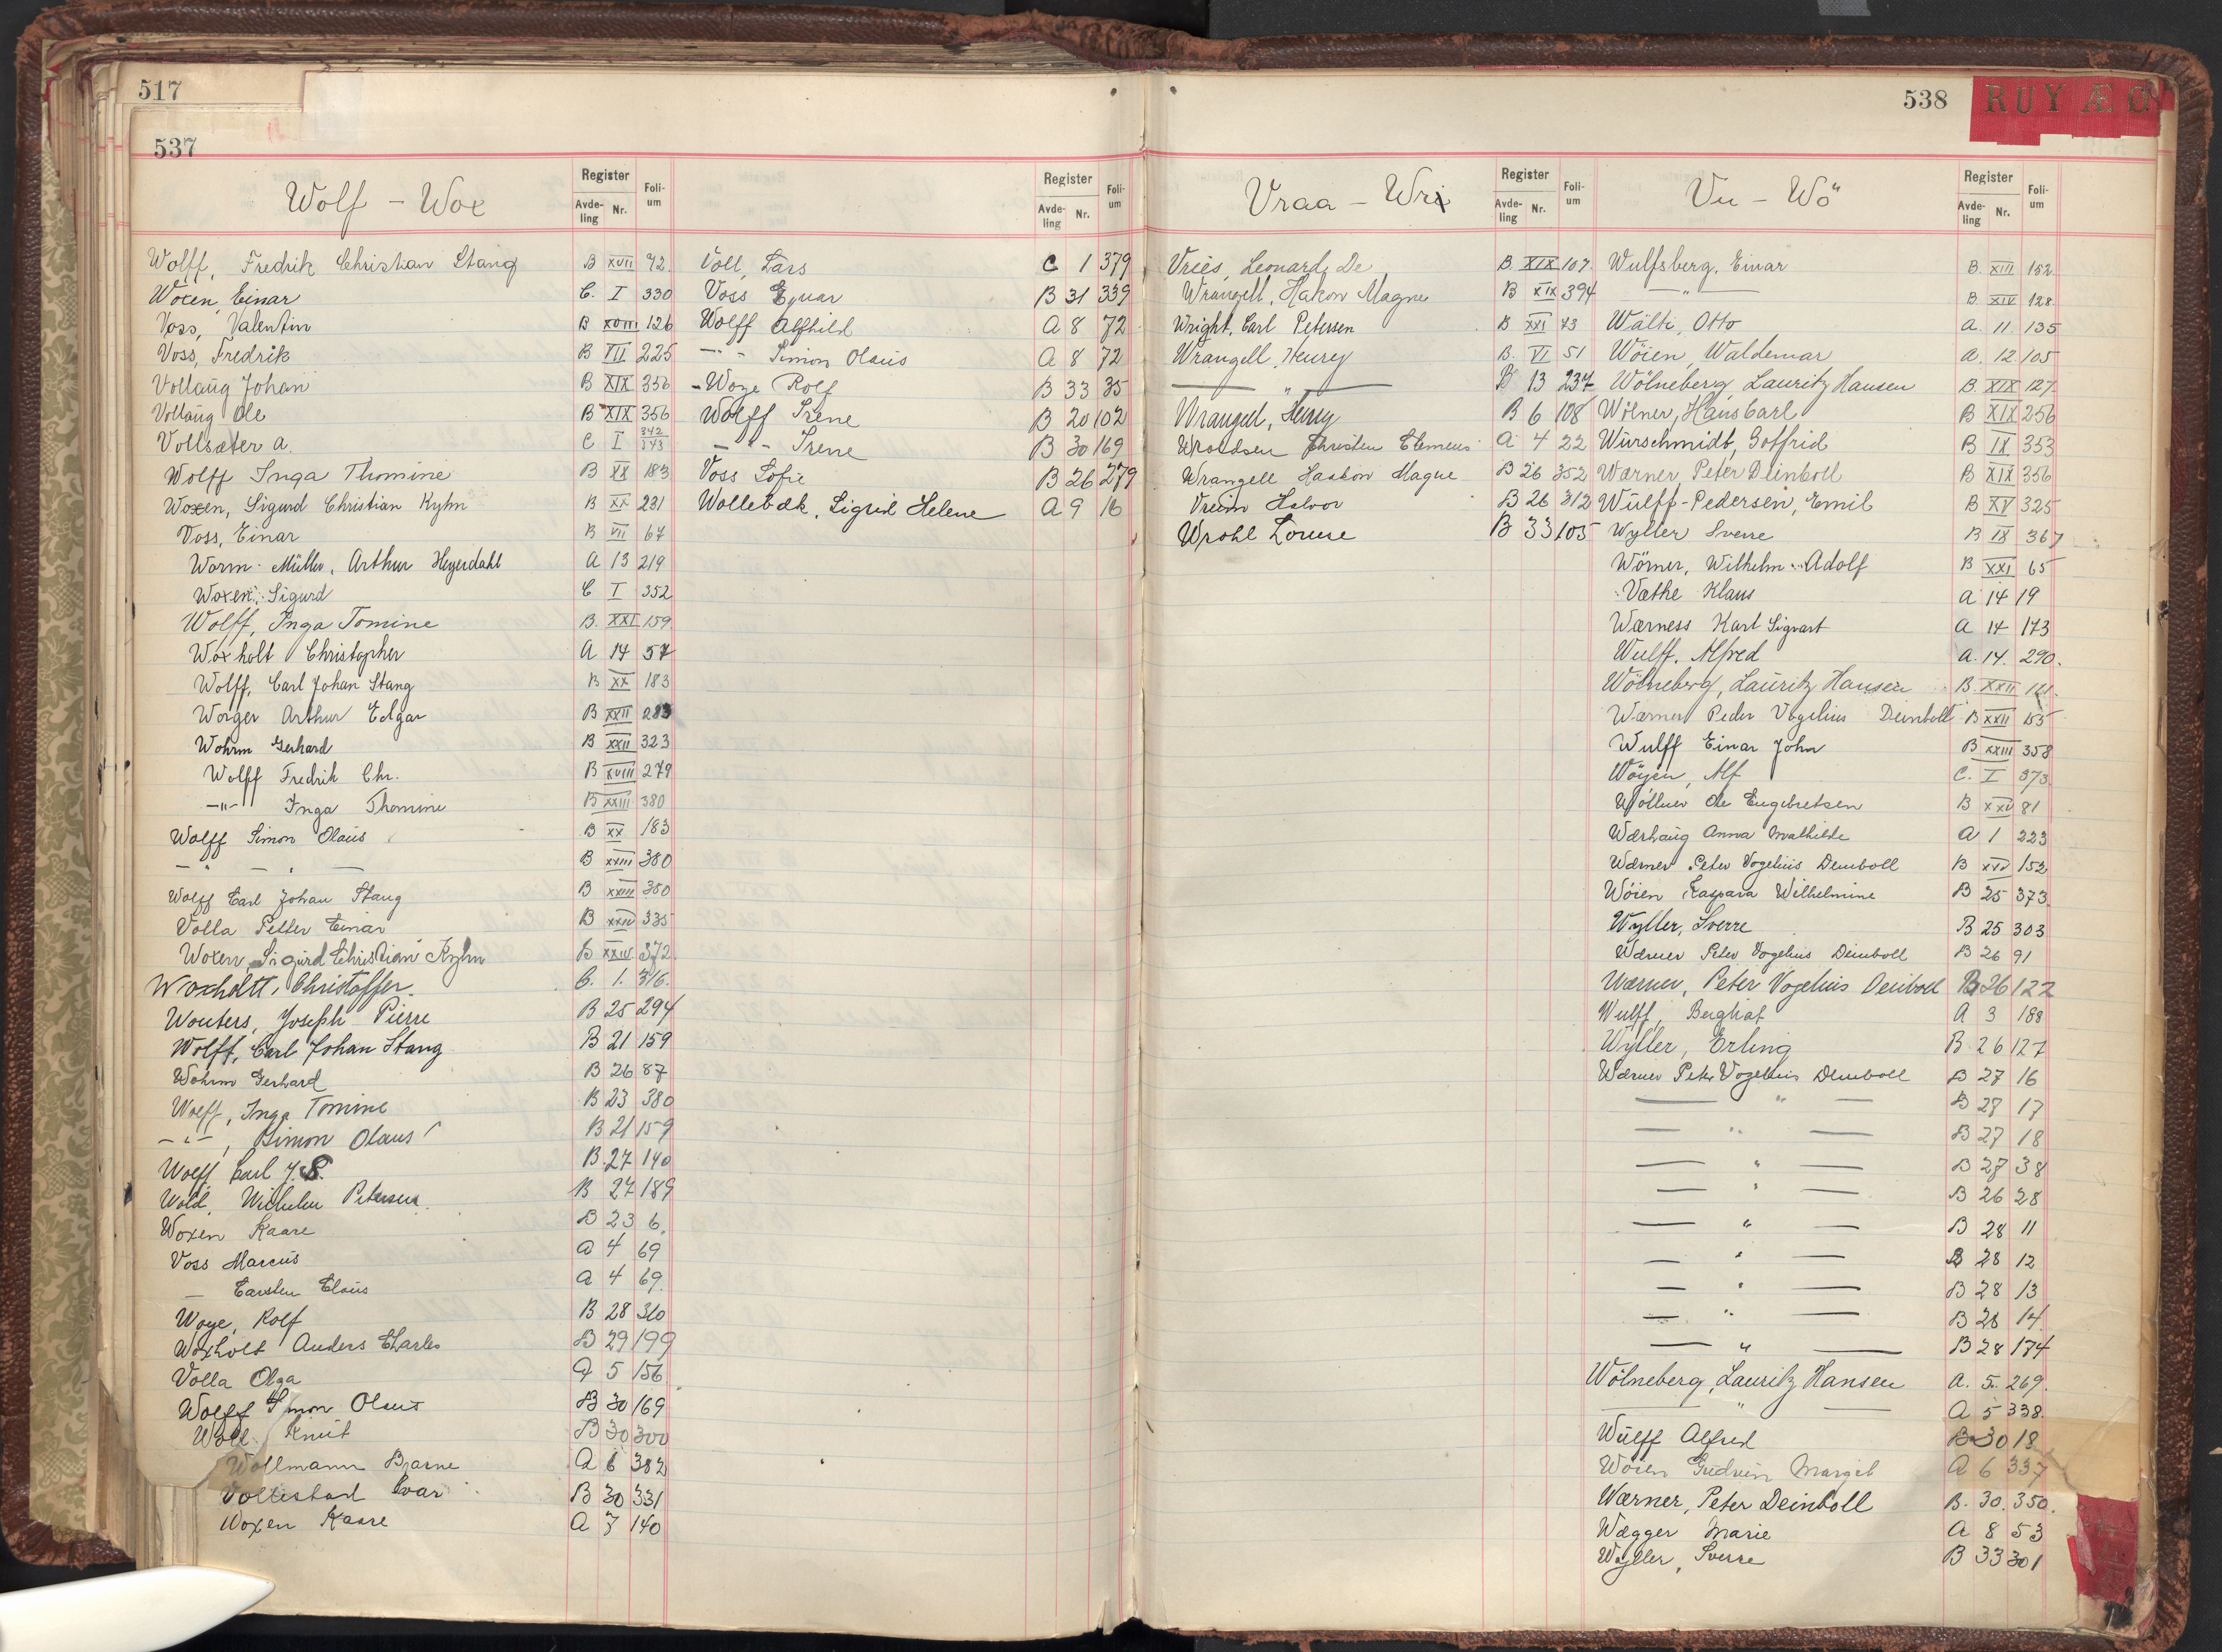 517
537
Wolf - Wox
Register
Avde-ling Nr.
Foli-um
Wolff, Fredrik Christian Stang B XVII 42
Woxen, Einar C. I 330
Voss, Valentin B XVIII 126
Voss, Fredrik B VII 225
Vollaug Johan B XIX 356
Vollaug Ole B XIX 356
Vollsæter A. C I 342 343
Wolff Inga Thomine B XX 183
Woxen, Sigurd Christian Kyhn B XX 231
Voss, Einar B VII 67
Worm-Müller, Arthur Heyerdahl A 13 219
Woxen, Sigurd C I 352
Wolff, Inga Tomine B. XXI 159
Woxholt Christopher A 14 57
Wolff, Carl Johan Stang B XX 183
Worger Arthur Edgar B XXII 283
Wohrm Gerhard B XXII 323
Wolff Fredrik Chr. B XVIII 279
-"- Inga Thomine B XXIII 380
Wolff Simon Olaus B XX 183
— " — B XXIII 380
Wolff Carl Johan Stang B XXIII 380
Volla Petter Einar B XXIV 335
Woxen, Sigurd Christian Kyhn B XXIV 372
Woxholtt, Christoffer. C. 1. 316.
Wouters, Joseph Pierre B 25 294
Wolff, Carl Johan Stang B 21 159
Wohrm Gerhard B 26 87
Wolff, Inga Tomine B 23 380
-"-, Simon Olaus B 21 159
Wolff Carl J. S. B 27 140
Wold, Wilhelm Petersen B 27 189
Woxen Kaare B 23 6
Voss Marcus A 4 69
— Carsten Claus A 4 69
Woye, Rolf B 28 310
Woxholt Anders Charles B 29 199
Volla Olga A 5 156
Wolff Simon Olaus B 30 169
Woll Knut B 30 300
Wollmann Bjarne A 6 382
Vollestad Ivar B 30 331
Woxen Kaare A 7 140
Register
Avde-ling Nr.
Foli-um
Voll, Lars C 1 379
Voss Ejnar B 31 339
Wolff Alfhild A 8 72
-"- Simon Olaus A 8 72
Woye Rolf B 33 35
Wolff Irene B 20 102
-"- Irene B 30 169
Voss Sofie B 26 279
Wollebæk, Sigrid Helene A 9 16
538
RUYÆØ
Vraa - Wri
Register
Avde-ling Nr.
Foli-um
Vries, Leonard, De B. XIX 107
Wrangell, Hakon Magne B XIX 394
Wright, Carl Petersen B XXI 43
Wrangell, Henry B. VI 51
— " — B 13 237
Wrangel, Henry B 6 108
Wroldsen Christen Clemens A 4 22
Wrangell Haakon Magne B 26 352
Vreim Halvor B 26 312
Wrohl Louise B 33 105
Vu - Wö
Register
Avde-ling Nr.
Foli-um
Wulfsberg, Einar B. XIII 152
— " — B. XIV 128
Wälti, Otto A. 11. 135
Wöien, Waldemar A. 12 105
Wölneberg Lauritz Hansen B XIX 127
Wölner, Hans Carl B XIX 256
Würschmidt, Gotfrid B IX 353
Wærner, Peter Deinboll B XIX 356
Wulff-Pedersen, Emil B XV 325
Wyller Sverre B IX 367
Wörner, Wilhelm Adolf B XXI 65
Væthe Klaus A 14 19
Wærness Karl Sigvart A 14 173
Wulff, Alfred A. 14. 290.
Wölneberg, Lauritz Hansen B. XXII 121
Wærner Peder Vogelius Deinboll B XXII 155
Wulff Einar John B XXIII 358
Wöyen, Alf C. I 373
Wöllner Ole Engebretsen B XXV 81
Wærhaug Anna Mathilde A 1 223
Wærner Peter Vogelius Deinboll B XXV 152
Wöien Kaspara Wilhelmine B 25 373
Wyller, Sverre B 25 303
Wærner Peter Vogelius Deinboll B 26 91
Wærner, Peter Vogelius Deinboll B 26 122
Wulff, Bergliot A 3 188
Wyller, Erling B 26 127
Wærner Peter Vogelius Deinboll B 27 16
— " — B 27 17
— " — B 27 18
— " — B 27 38
— " — B 26 28
— " — B 28 11
— " — B 28 12
— " — B 28 13
— " — B 28 14
— " — B 28 174
Wölneberg, Lauritz Hansen A. 5. 269.
— " — A 5 338.
Wulff Alfred B 30 18
Wöien Gudrun Margit A 6 337
Wærner, Peter Deinboll B. 30. 350.
Wægger Marie A 8 53
Wyller, Sverre B 33 301